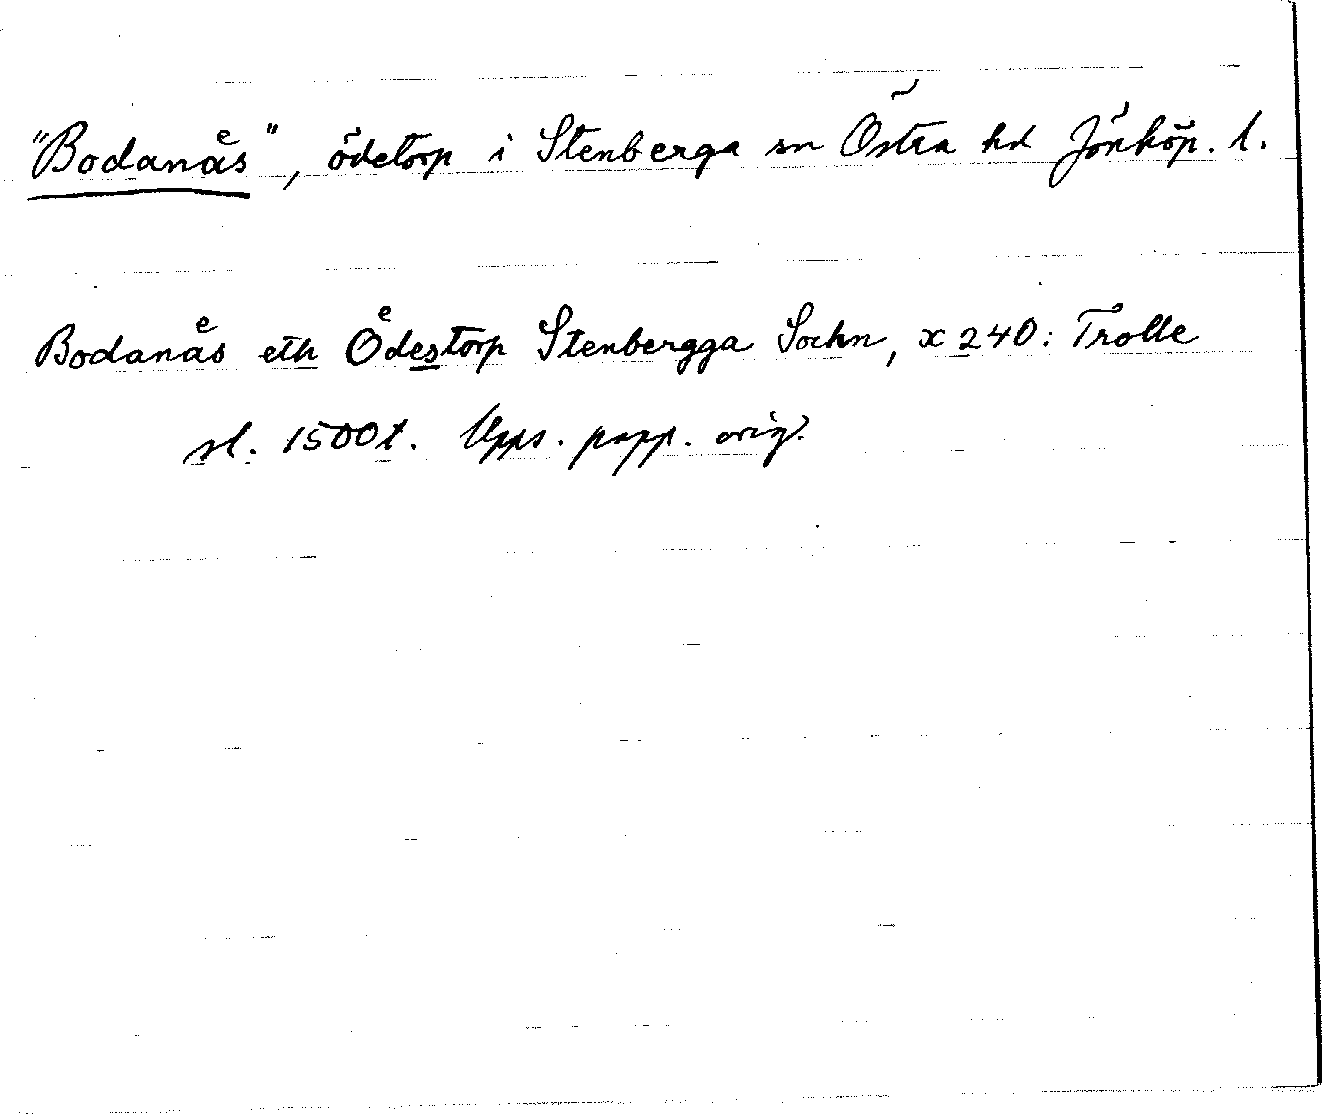 "Bodanaͤs", ödetorp i Stenberga sn Östra hd Jönköp. l.
Bodanaͤs eth Oͤdestorp Stenbergga Sochn, x 240: Trolle
sl. 1500t. Upps. papp. orig.